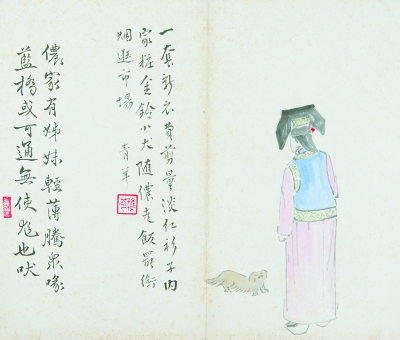 一套新衣費剪量淡紅衫子內
家粧金鈴小犬隨儂走飯罷銜
烟逛市場 青羊
儂家有姊妹輕薄騰衆喙
藍橋或可通無使尨也吠